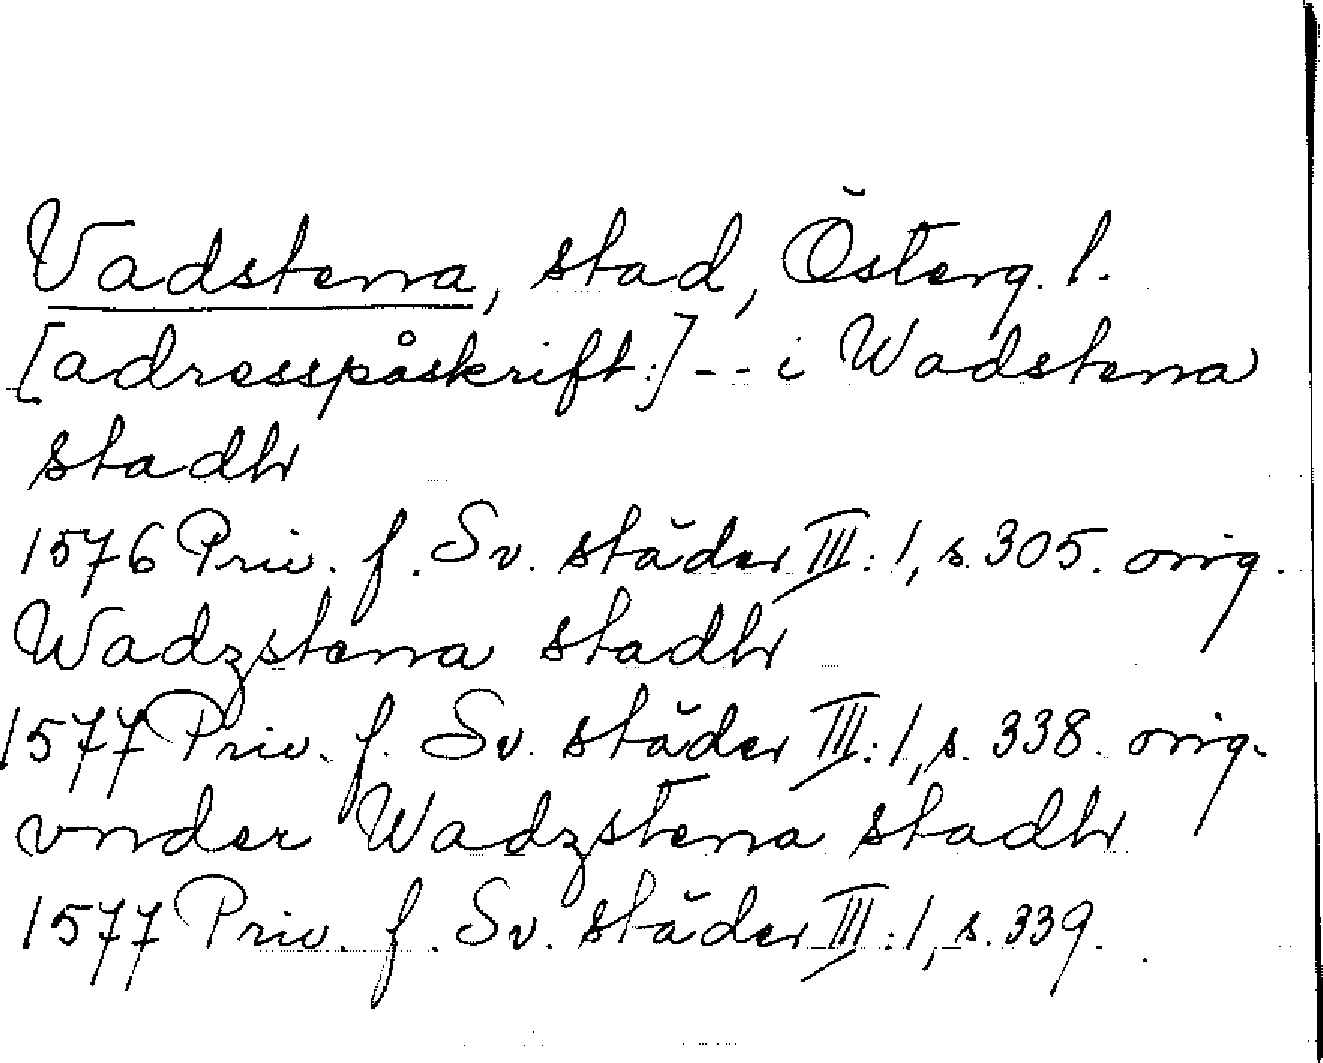 Vadstena, stad, Österg. l.
[adresspåskrift:] - - i Wadstena
stadh
1576 Priv. f. Sv. städer III: 1, s. 305. orig.
Wadzstena stadh
1577 Priv. f. Sv. städer III: 1, s. 338. orig.
vnder Wadzstena stadh
1577 Priv. f. Sv. städer III: 1, s. 339.